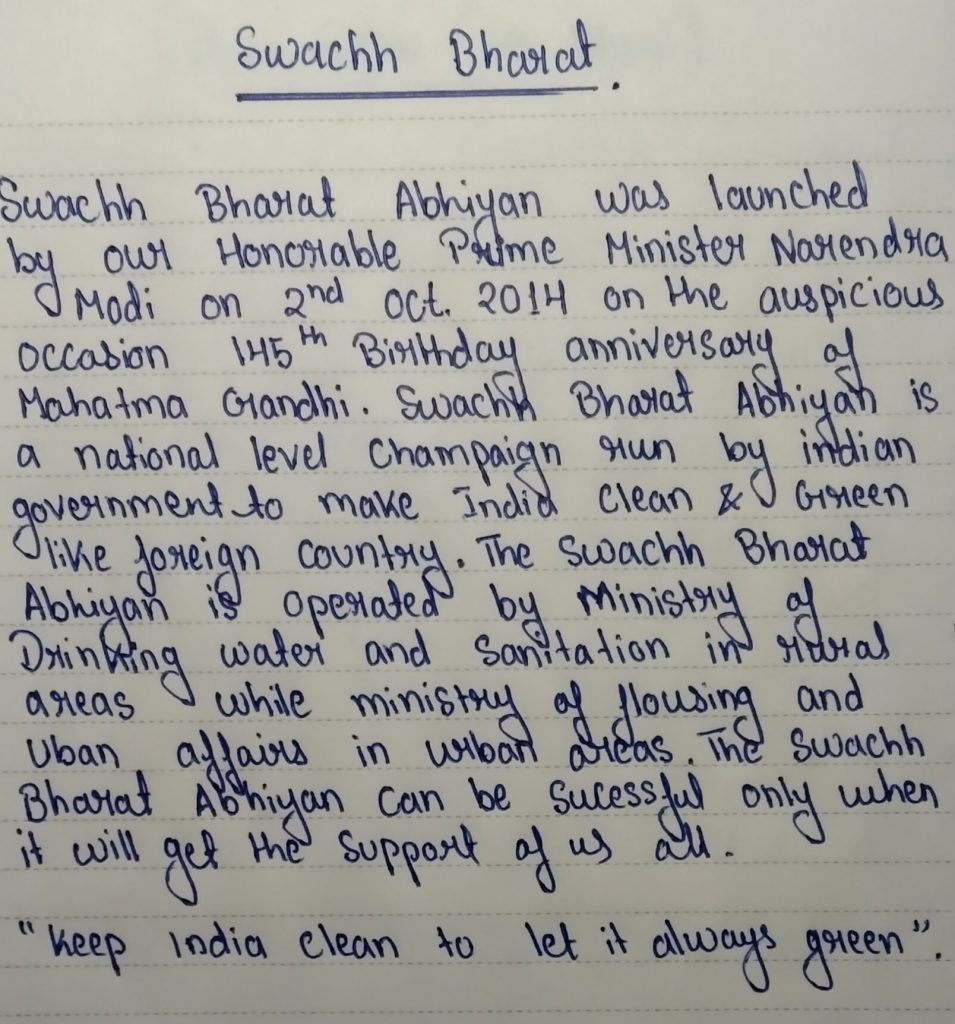 Swachh Bharat.
Swachh Bharat Abhiyan was launched
by our Honorable Prime Minister Narendra
Modi on 2nd Oct. 2014 on the auspicious
occasion 145th Birthday anniversary of
Mahatma Gandhi. Swachh Bharat Abhiyan is
a national level Champaign run by indian
government to make India Clean & Green
like foreign country. The Swachh Bharat
Abhiyan is operated by Ministry of
Drinking water and Sanitation in rural
areas while ministry of Housing and
Uban affairs in urban areas. The Swachh
Bharat Abhiyan can be Sucessful only when
it will get the Support of us all.
"Keep India clean to let it always green".